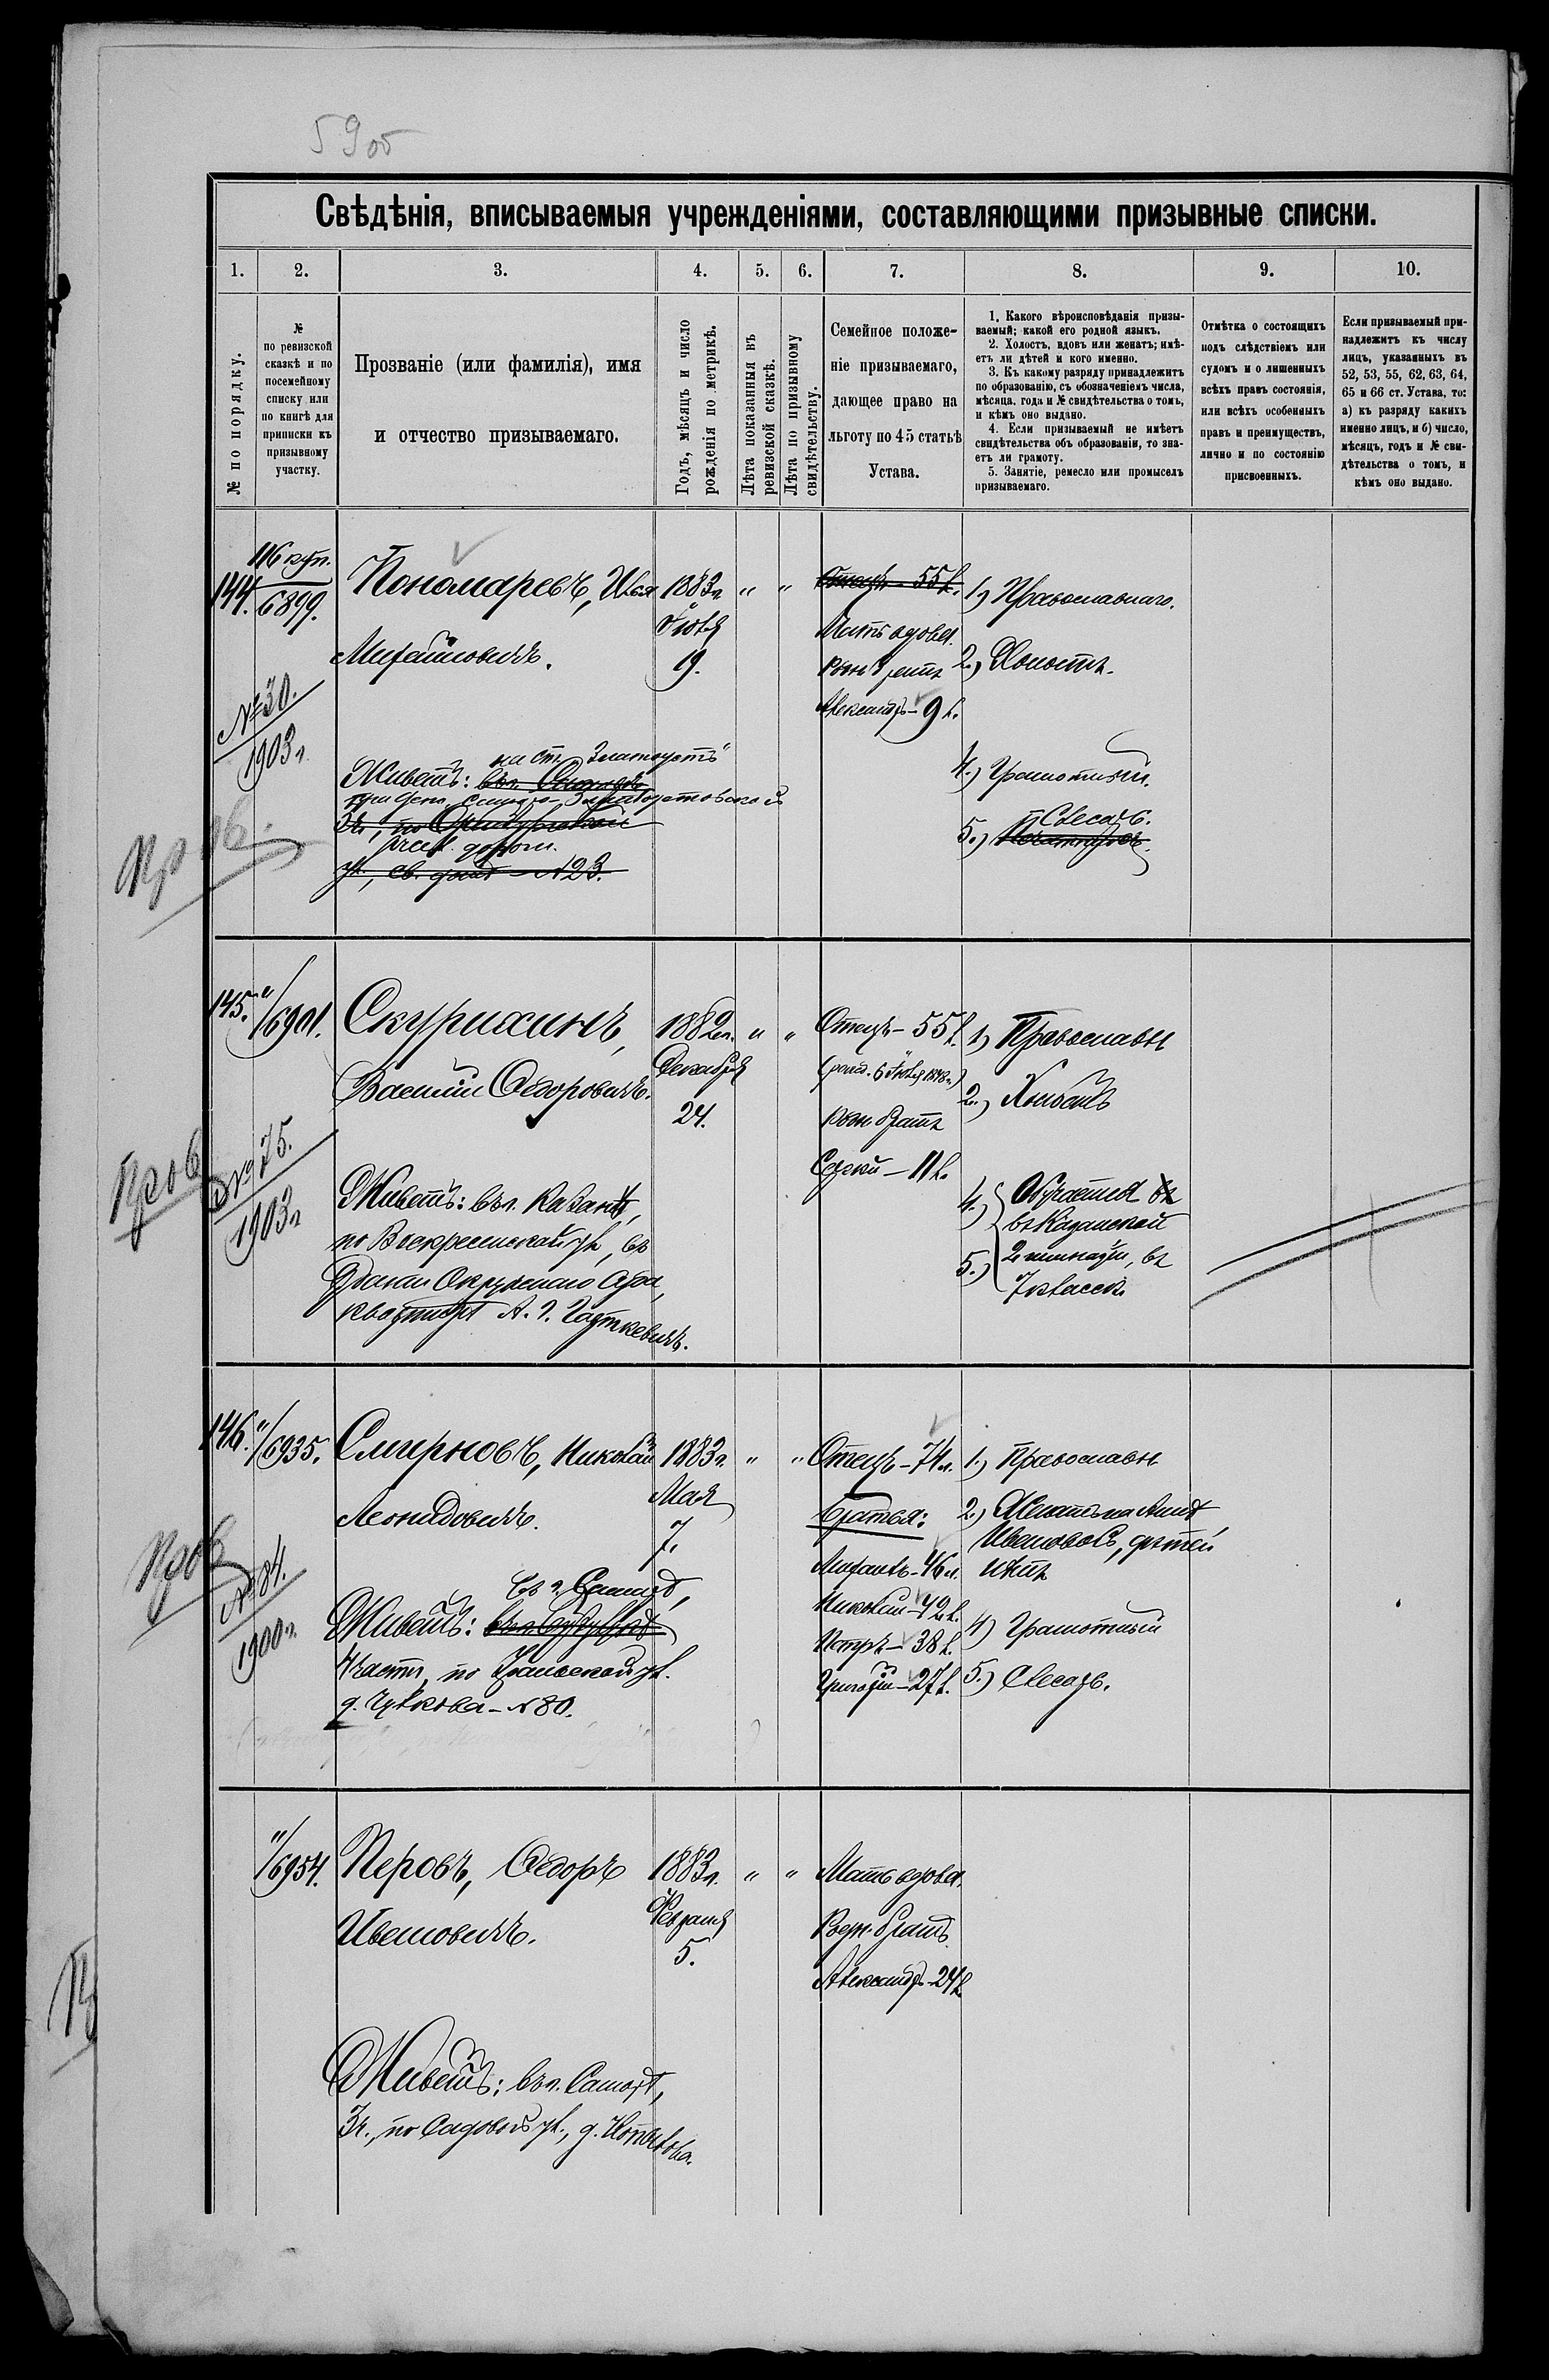 59об
Свѣдѣнія, вписываемыя учрежденіями, составляющими призывные списки.
1. 2. 3. 4. 5. 6. 7. 8. 9. 10.
№ по порядку.
№
по ревизской
сказкѣ и по
посемейному
списку или
по книгѣ для
приписки къ
призывному
участку.
Прозваніе (или фамилія), имя
и отчество призываемаго.
Годъ, мѣсяцъ и число
рожденія по метрикѣ.
Лѣта показанныя въ
ревизской сказкѣ.
Лѣта по призывному
свидѣтельству.
Семейное положе-
ніе призываемаго,
дающее право на
льготу по 45 статьѣ
Устава.
1. Какого вѣроисповѣданія призы-
ваемый; какой его родной языкъ.
2. Холостъ, вдовъ или женатъ; имѣ-
етъ ли дѣтей и кого именно.
3. Къ какому разряду принадлежитъ
по образованію, съ обозначеніемъ числа,
мѣсяца, года и № свидѣтельства о томъ,
и кѣмъ оно выдано.
4. Если призываемый не имѣетъ
свидѣтельства объ образованіи, то зна-
етъ ли грамоту.
5. Занятіе, ремесло или промыселъ
призываемаго.
Отмѣтка о состоящихъ
подъ слѣдствіемъ или
судомъ и о лишенныхъ
всѣхъ правъ состоянія,
или всѣхъ особенныхъ
правъ и преимуществъ,
лично и по состоянію
присвоенныхъ.
Если призываемый при-
надлежитъ къ числу
лицъ, указанныхъ въ
52, 53, 55, 62, 63, 64,
65 и 66 ст. Устава, то:
а) къ разряду какихъ
именно лицъ, и б) число,
мѣсяцъ, годъ и № сви-
дѣтельства о томъ, и
кѣмъ оно выдано.
144.
116 куп.
6899.
№ 30.
1903 г.
Пономаревъ, Илья
Михайловичъ.
на ст. "Златоустъ"
Живетъ: въ г.
Самаро-Златоустовской
3 ч., по Оренбургской
дороги.
ул., св. домъ - № 23.
1883 г.
Іюля
19.
" "
Отецъ - 55 л.
Мать вдова.
Александръ - 9 л.
1) Православнаго.
2.) Холостъ.
4.) Грамотный.
Слесарь.
5.)
145.
"/6901.
Пров
№ 75.
1903 г
Скурихинъ,
Василій Ѳедоровичъ.
Живетъ: въ г. Казани,
по Воскресенской ул., въ
зданіи Окружнаго Суда,
1882 г.
Декабря
24.
" "
Отецъ - 55 л.
братъ
Сергѣй - 11 л.
1) Православн
2.)
4.)
5.)
Обучается въ
въ Казанской
2 гимназіи, въ
7 классѣ.
146.
"/6935.
Пров
№ 84.
1900 г.
Смирновъ, Николай
Леонидовичъ.
въ г. Самарѣ,
Живетъ:
4 части, по Уральской ул.
д. Чуркова - № 80.
1883 г.
Мая
7.
" "
Отецъ - 74 л.
Братья:
Михаилъ - 46 л.
Николай - 42 л.
Петръ - 38 л.
Григорій - 27 л.
1.) Православн
2.) Женатъ на Аннѣ
Ивановой, дѣтей
нѣтъ
4) Грамотный
5.) Слесарь.
"/6954.
Перовъ, Ѳедоръ
Ивановичъ.
Живетъ: въ г. Самарѣ,
3 ч., по Садовой ул., д.
1883 г.
Февраля
5.
" "
Мать вдова.
братъ
Александръ - 24 л.